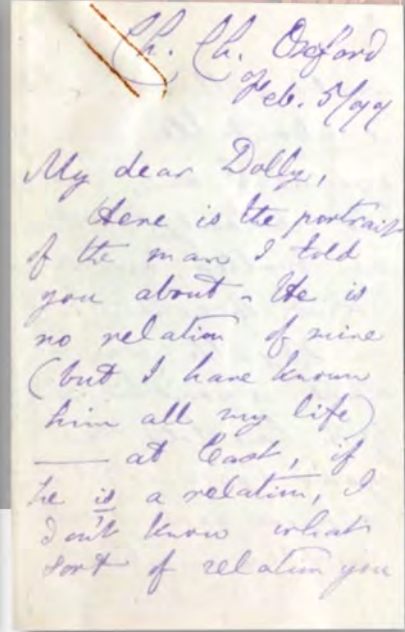 Ch. Ch. Oxford
Feb. 5/77
My dear Dolly,
Here is the portrait
of the man I told
you about - He is
no relation of mine
(but I have known
him all my life)
— at least, if
he is a relation, I
don't know what
sort of relation you